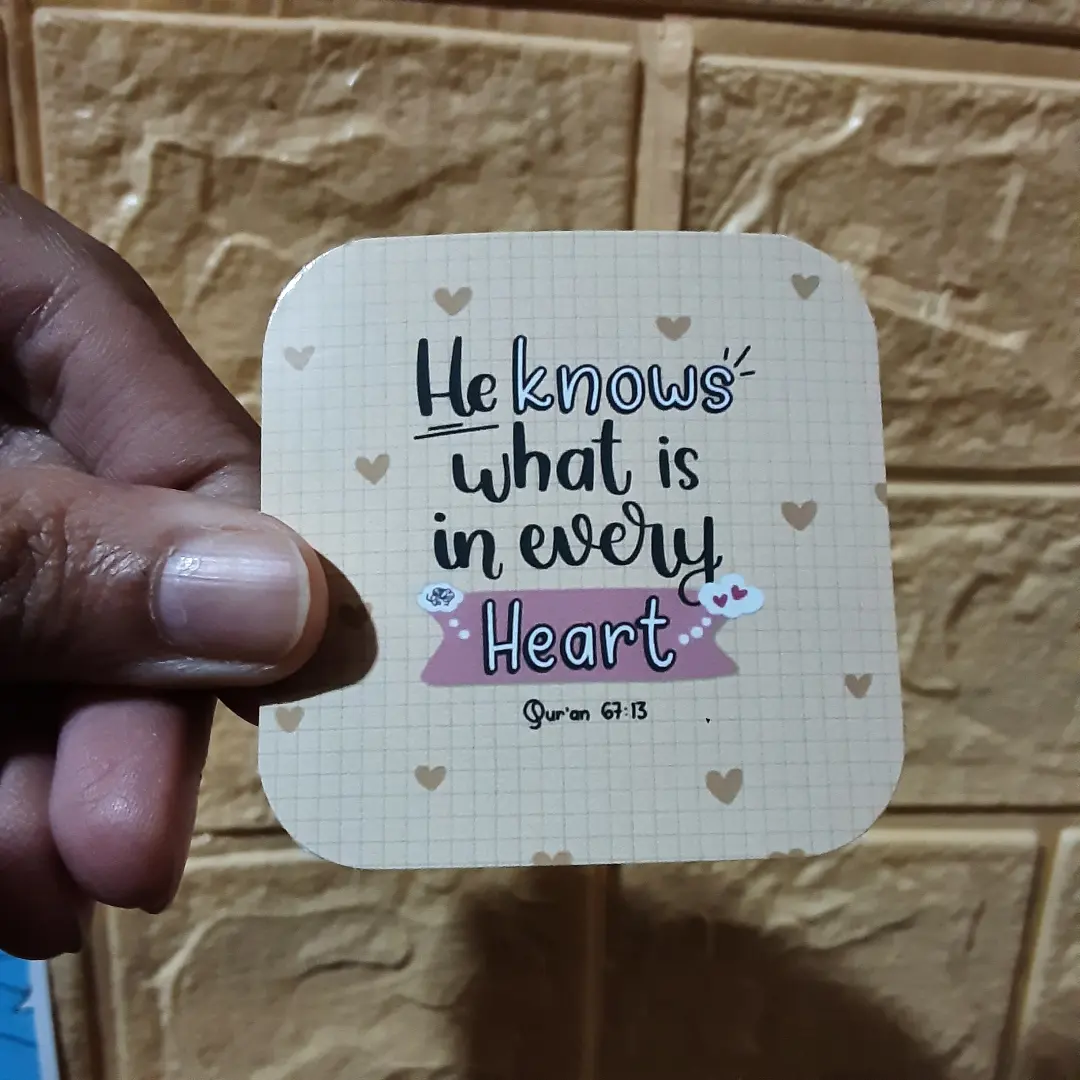 He knows
what is
in every
Heart
Qur'an 67:13